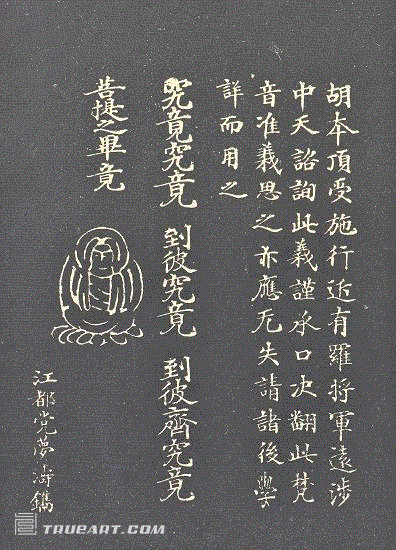 胡本頂受施行近有羅將軍遠涉
中天諮詢此義謹承口决翻此梵
音准義思之亦應无失請諸後學
詳而用之
究竟究竟 到彼究竟 到彼齊究竟
菩提之畢竟
江都党夢濤鐫
TRUEART.COM